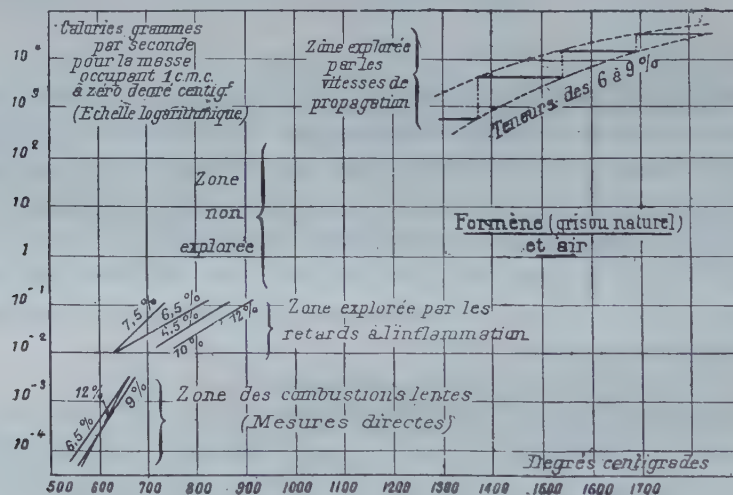 Calories grammes
par seconde
pour la masse
occupant 1 c.m.c.
à zéro degré centigr
(Echelle logarithmique)
Zône explorée
par les
vitesses de
propagation
Teneurs des 6 à 9%
Zone
non
explorée
Formène (grisou naturel)
et air
7,5%
6,5%
4,5%
10%
12%
Zone explorée par les
retards à l'inflammation
12%
9%
6,5%
Zone des combustions lentes
(Mesures directes)
Degrés centigrades
10⁴
10³
10²
10
1
10⁻¹
10⁻²
10⁻³
10⁻⁴
500 600 700 800 900 1000 1100 1200 1300 1400 1500 1600 1700